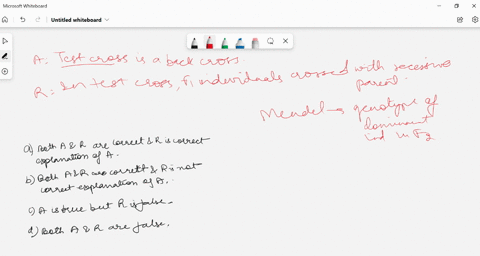 Microsoft Whiteboard
Untitled whiteboard
A: Test cross is a back cross.
R: In test cross, F1 individuals crossed with recessive
parent.
Mendel → genotype of
dominant
ind in F2
a) Both A & R are correct & R is correct
explanation of A.
b) Both A & R are correct & R is not
correct explanation of A.
c) A is true but R is false.
d) Both A & R are false.